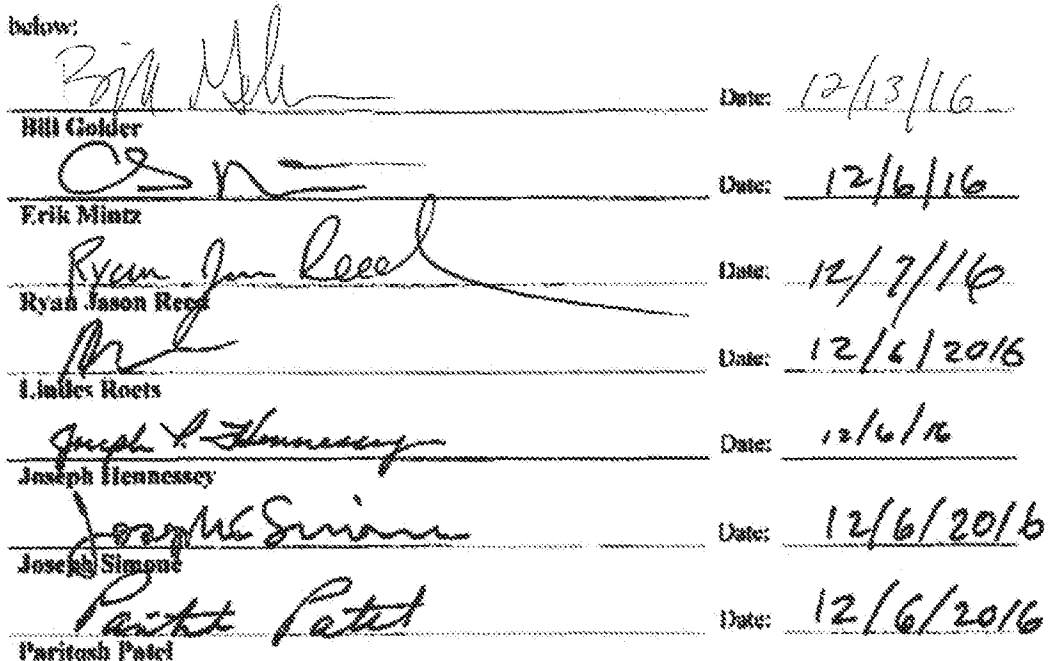 below:
Date: 12/13/16
Bill Golder
Date: 12/6/16
Erik Mintz
Ryan Reed Date: 12/7/16
Ryan Jason Reed
Date: 12/6/2016
Roets
Joseph P. Hennessey Date: 12/6/16
Joseph Hennessey
Joseph C Simone Date: 12/6/2016
Joseph Simone
Patel Date: 12/6/2016
Paritosh Patel